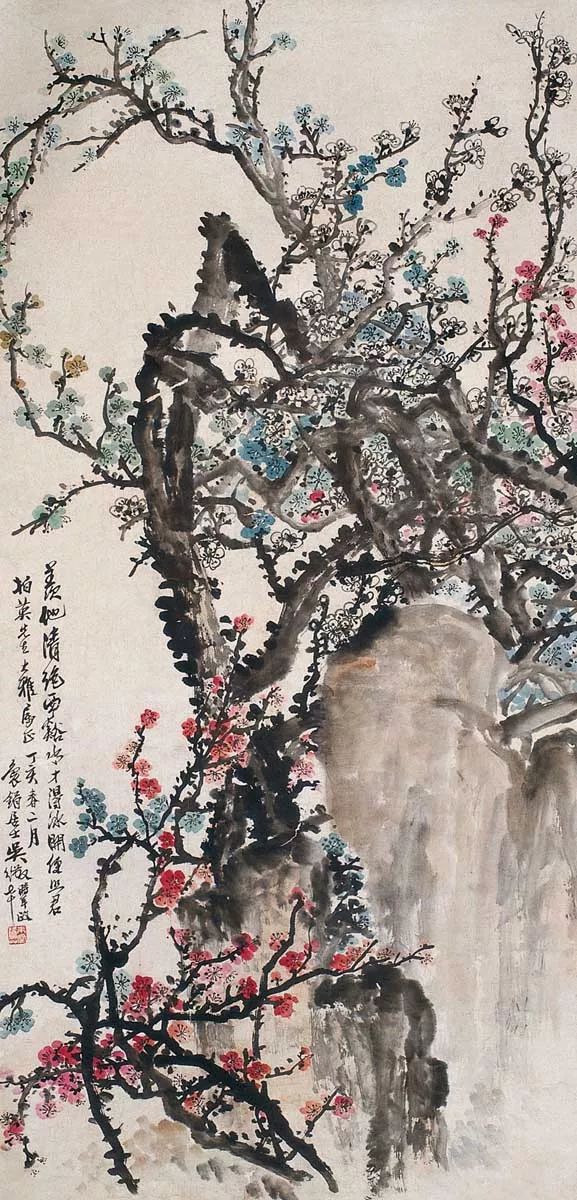 羨他清絕西谿水才得冰開便照君
柏英先生大雅屬正丁亥春二月
袌鋗居士吳徵